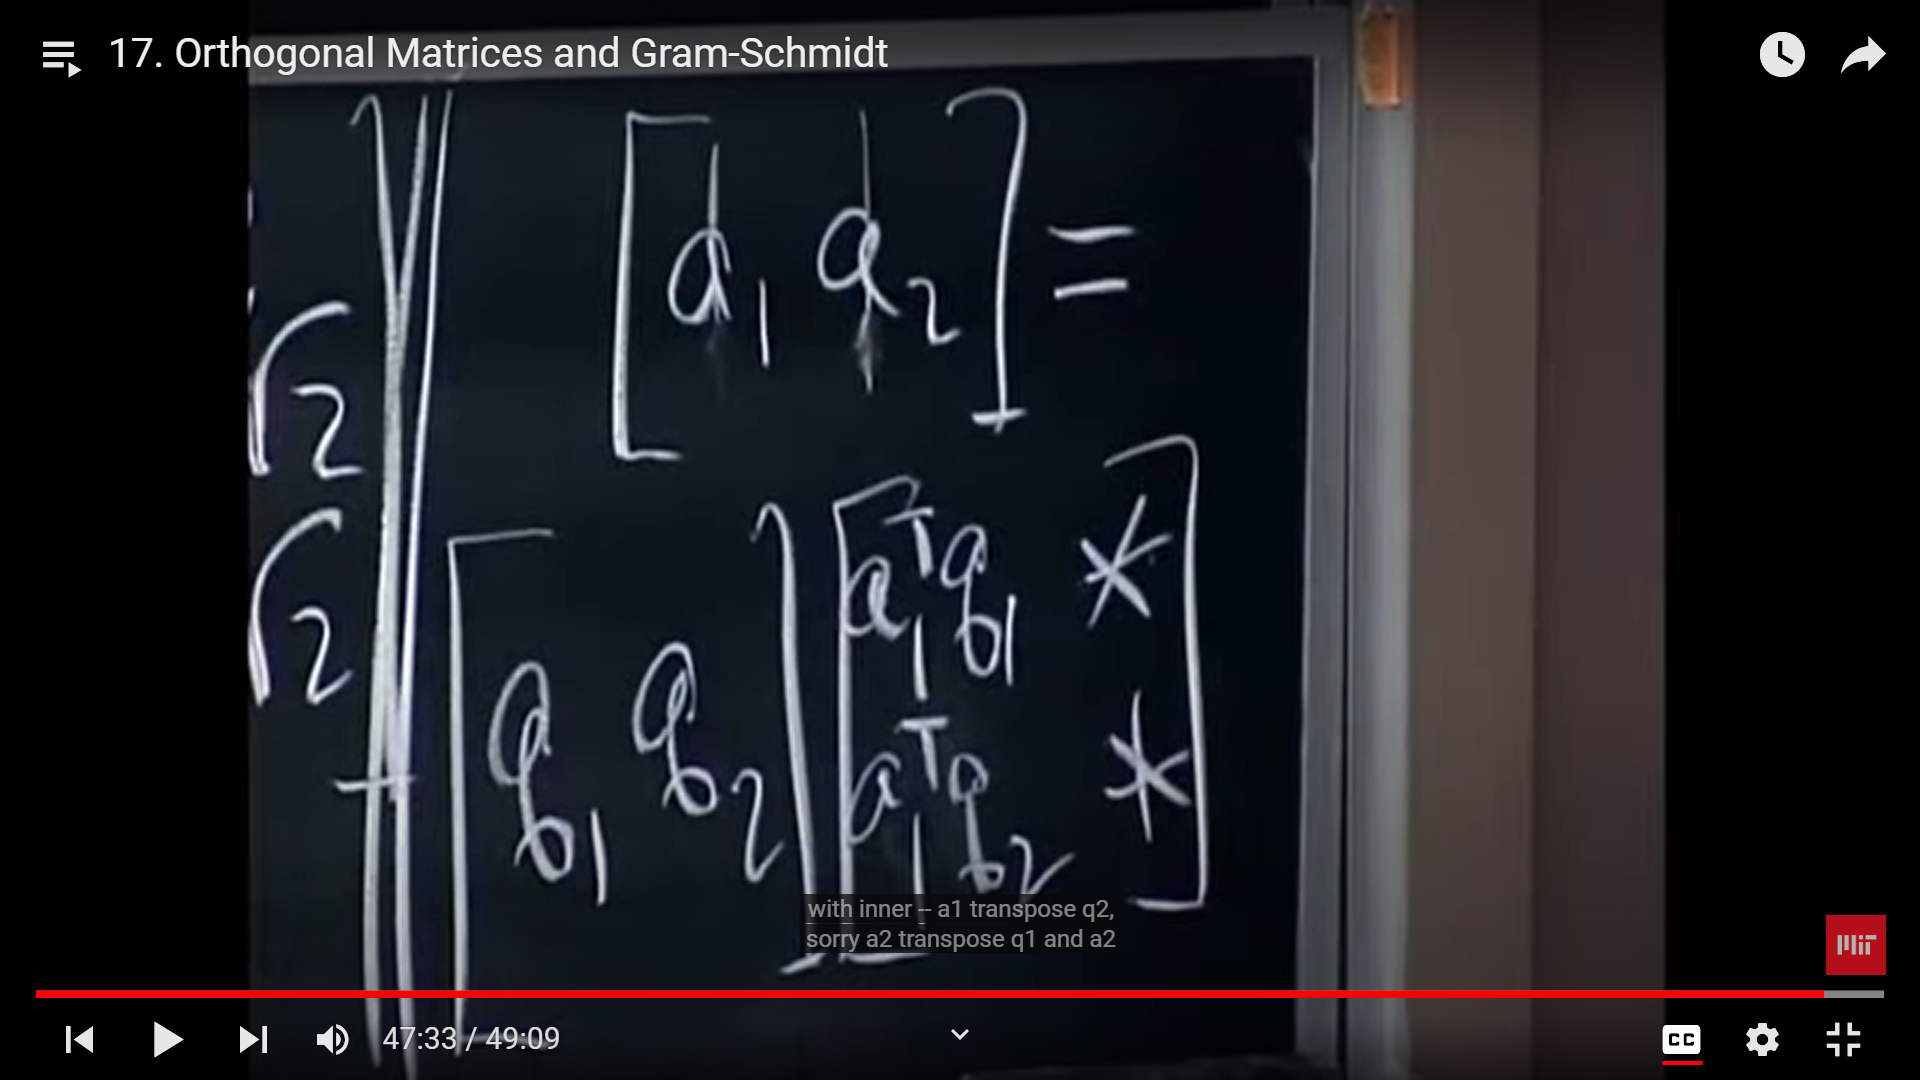 17. Orthogonal Matrices and Gram-Schmidt
[a₁ a₂] =
√2
√2
[q₁ q₂] [a₁ᵀq₁ *
a₁ᵀq₂ *]
with inner -- a1 transpose q2,
sorry a2 transpose q1 and a2
MIT
47:33 / 49:09
CC